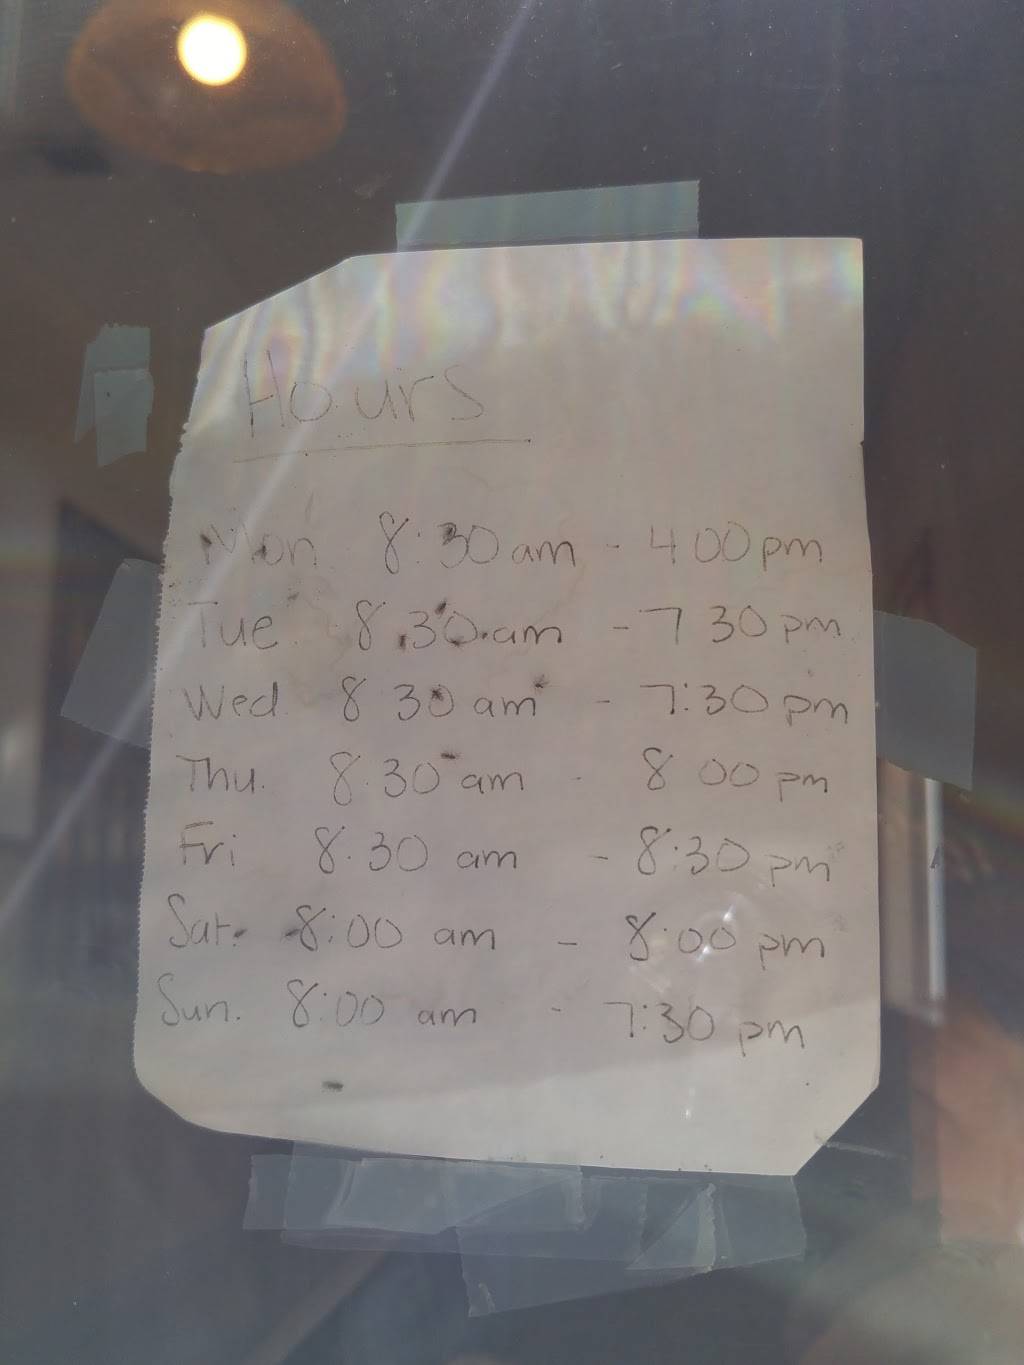 Hours
Mon 8:30 am - 4 00 pm
Tue 8.30 am - 7 30 pm
Wed 8 30 am - 7:30 pm
Thu. 8.30 am - 8 00 pm
Fri 8.30 am - 8:30 pm
Sat. 8:00 am - 8:00 pm
Sun. 8:00 am - 7:30 pm